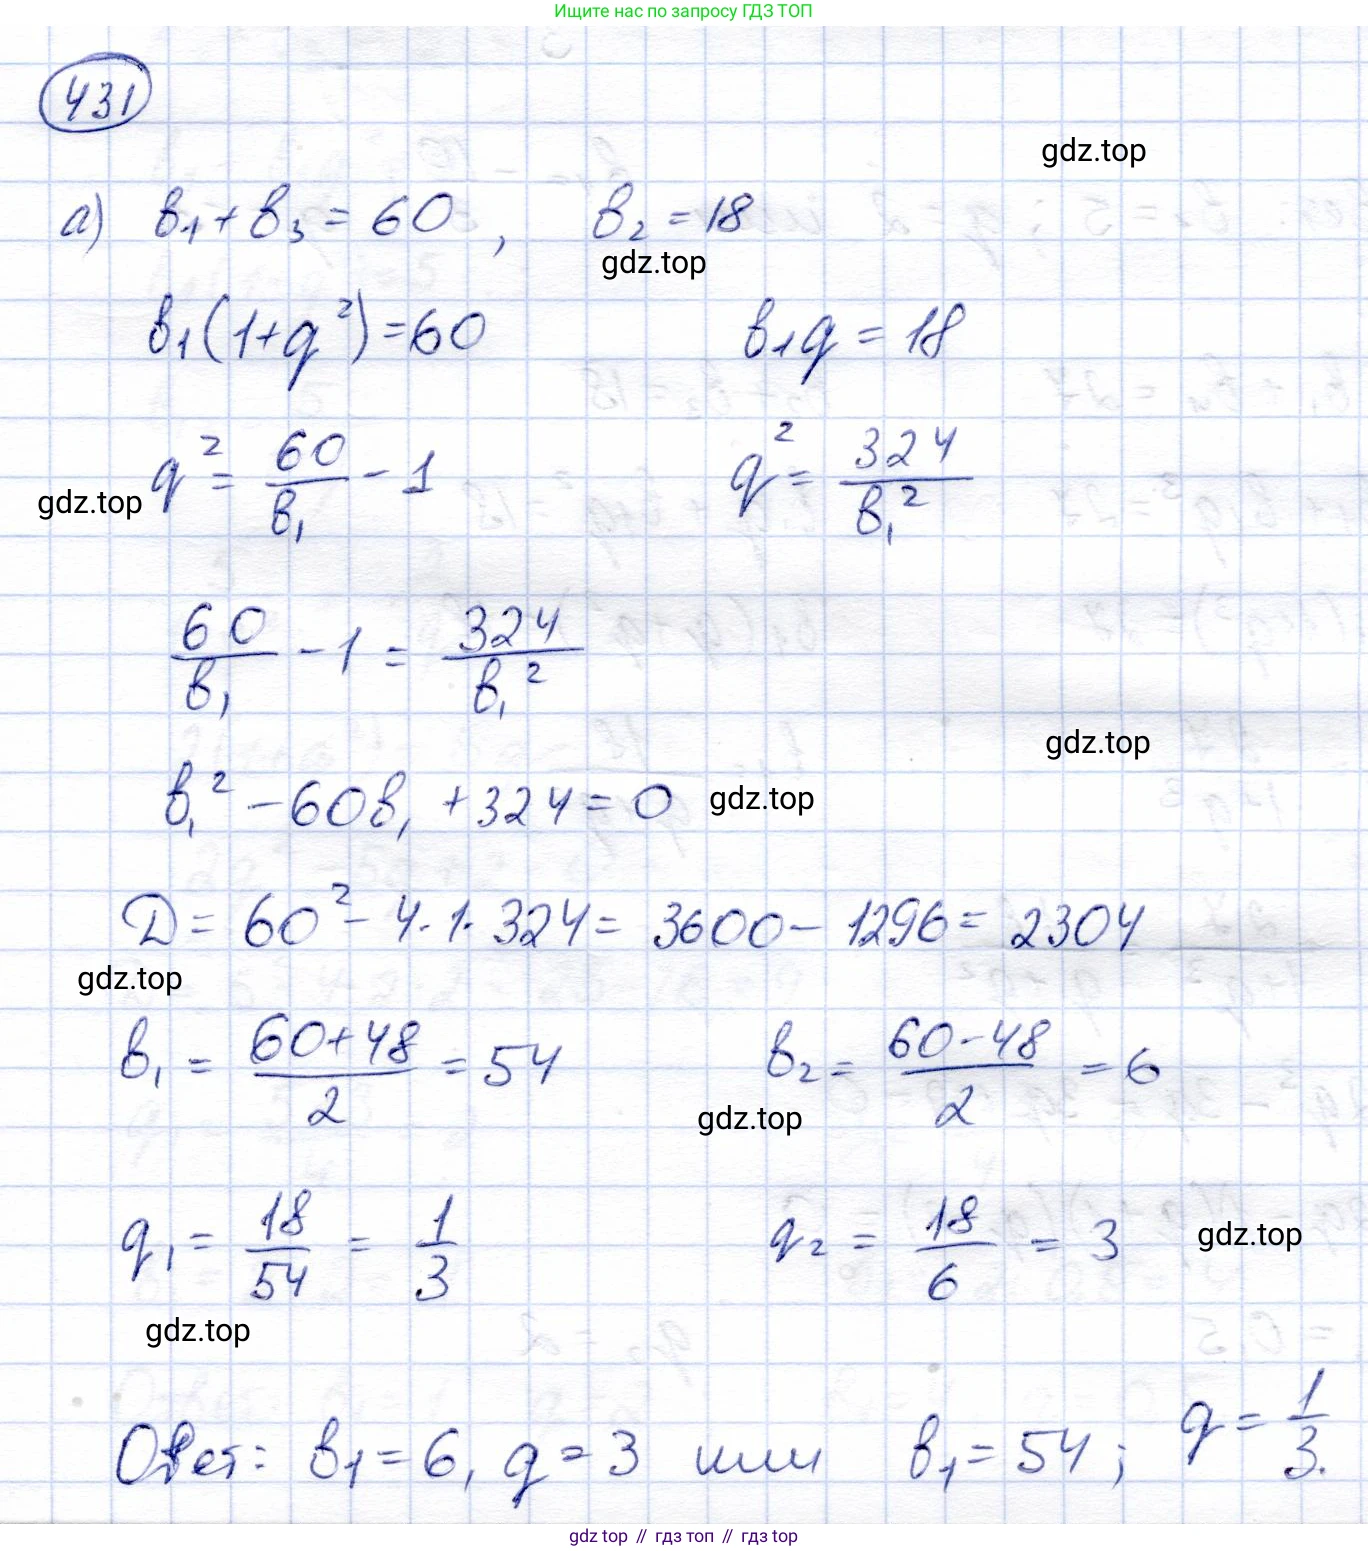 Ищите нас по запросу ГДЗ ТОП
431
gdz.top
а) b₁ + b₃ = 60, b₂ = 18
gdz.top
b₁(1+q²) = 60 b₁q = 18
q² = 60/b₁ - 1 q² = 324/b₁²
gdz.top
60/b₁ - 1 = 324/b₁²
gdz.top
b₁² - 60b₁ + 324 = 0 gdz.top
D = 60² - 4·1·324 = 3600 - 1296 = 2304
gdz.top
b₁ = (60+48)/2 = 54 b₂ = (60-48)/2 = 6
gdz.top
q₁ = 18/54 = 1/3 q₂ = 18/6 = 3 gdz.top
gdz.top
Ответ: b₁ = 6, q = 3 или b₁ = 54; q = 1/3.
gdz.top // гдз топ // гдз top